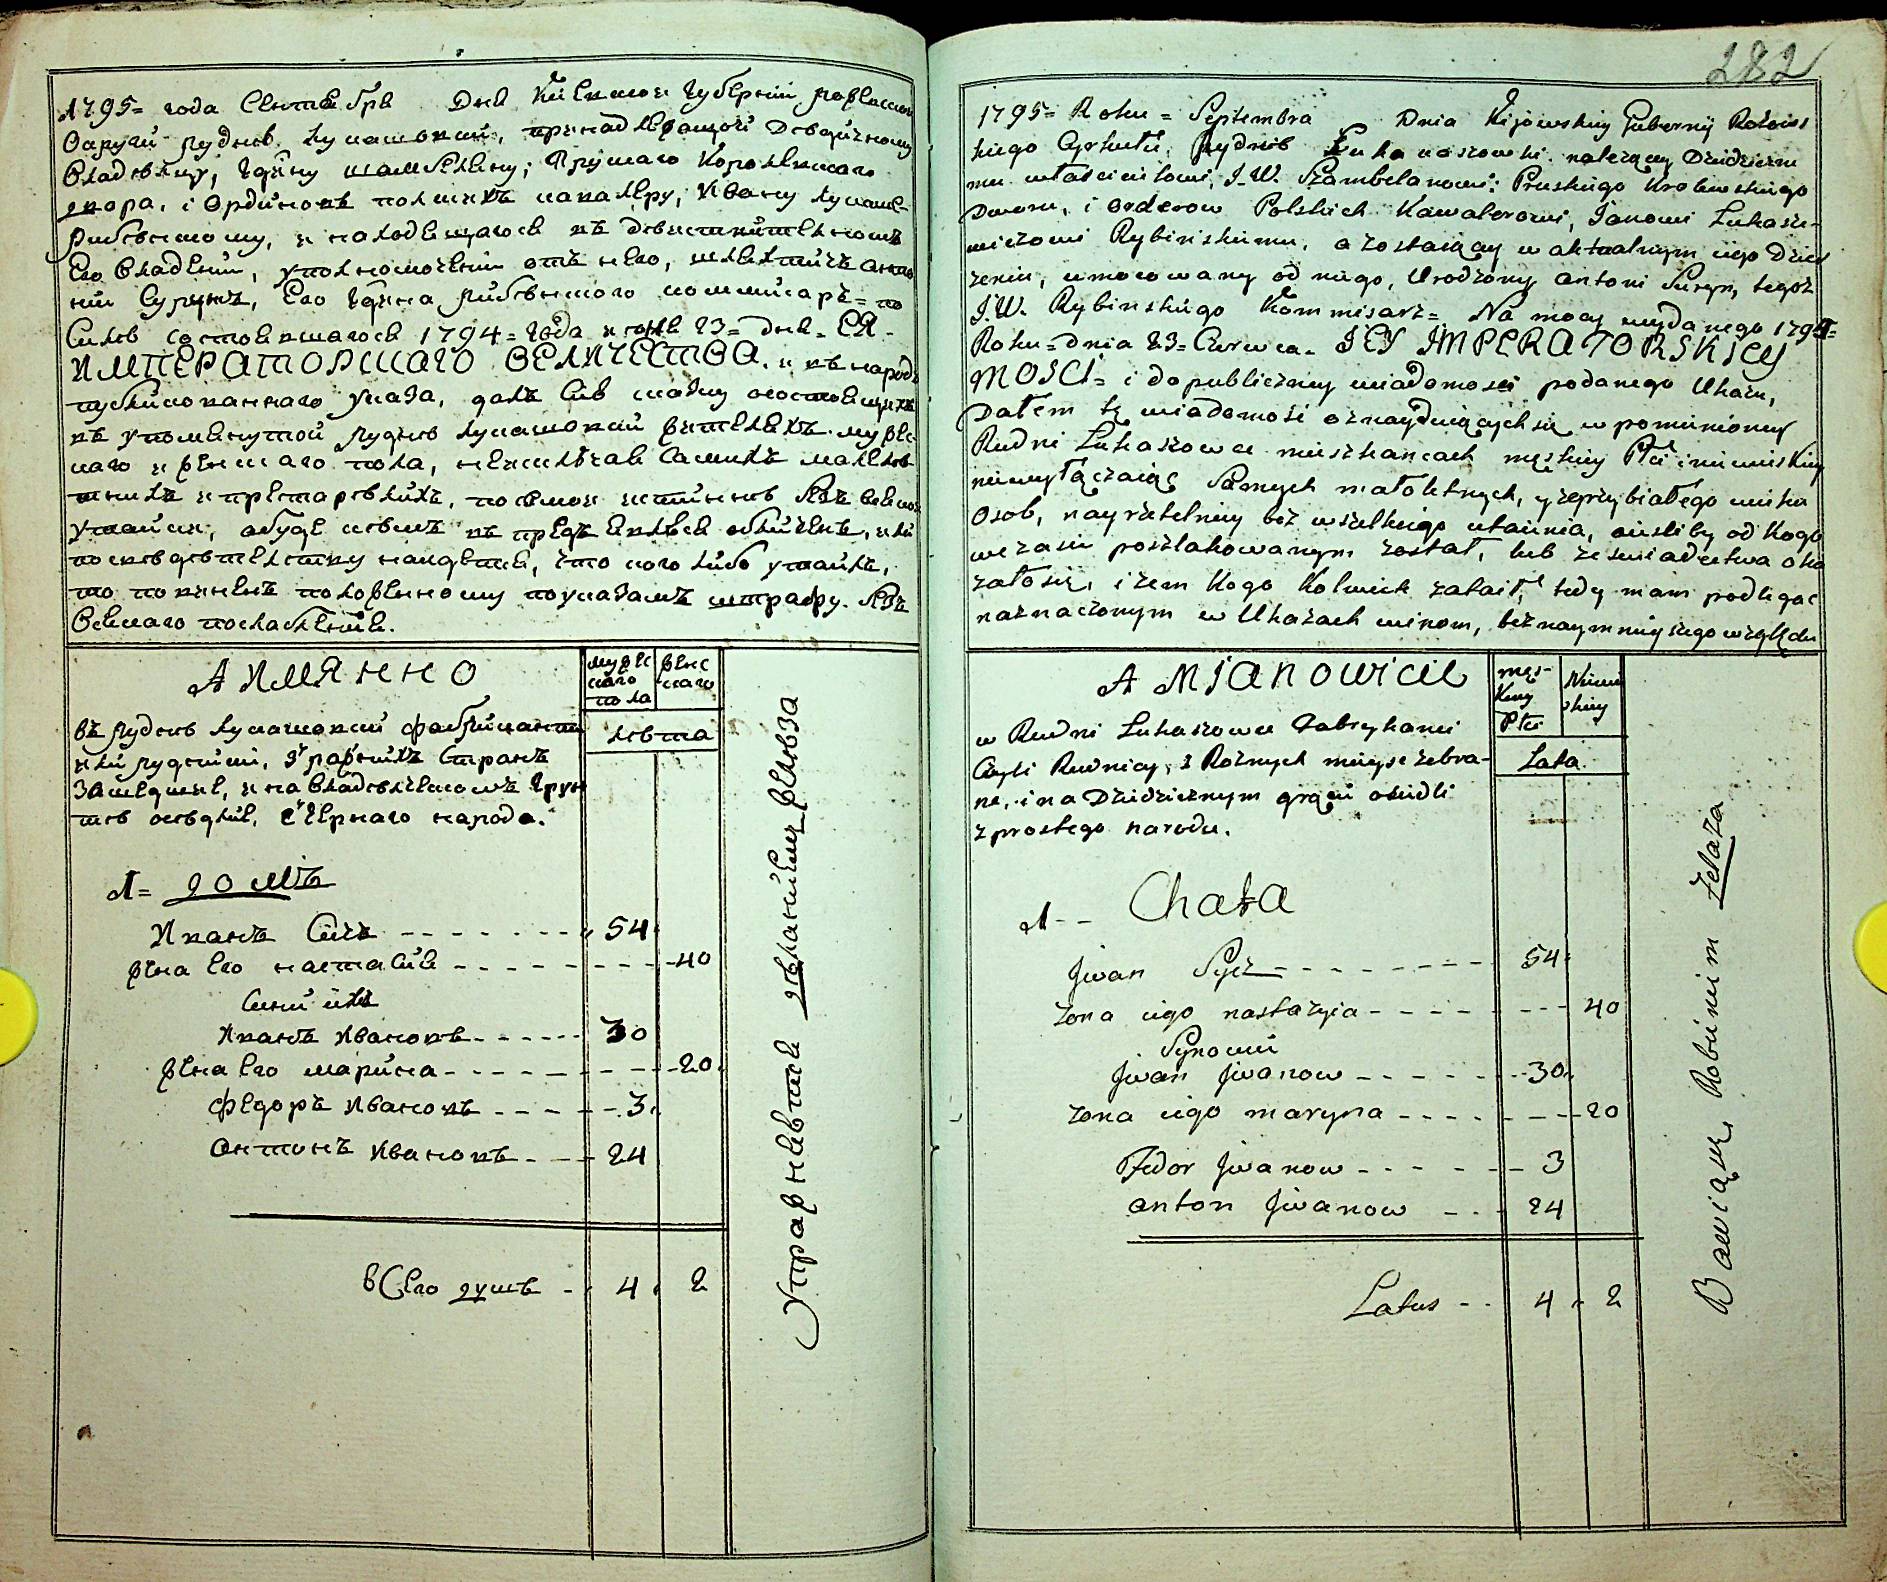 1795= года Сентебра дня Киевской Губернии
Округи Рудне Лукашовки, принадлежащой Дедичному
Владелцу, Гдину Шамбеляну, Прускаго Королевскаго
двора, и Ординовъ полскихъ кавалеру, Ивану Лукаше-
Рибенскому, и находещагося въ действителномъ
Его владении, уполномочений отъ него, шляхтичъ Анто
ний Суринъ, Его Гдина Рибенского коммисаръ= по
Силе состоевшагося 1794= года июня 23= дня= ЕЯ-
ИМПЕРАТОРСКАГО ВЕЛИЧЕСТВА. и въ народъ
публикованнаго указа, далъ сию сказку о состоящихъ
въ упоменутой Рудне Лукашовки жителяхъ мужес-
каго и женскаго пола, неисключая самихъ малелет
нихъ и престарелихъ, по самой истинне безъ всякой
утайки, а буде кемъ въ предъ явлюся обличенъ, или
по свидетелству найдетца, что кого либо утаилъ,
то повиненъ положенному по указамъ штрафу. безъ
Всякаго послабления.
АИМЯННО
мужес
каго
пола
женс
каго
лета
въ Рудне Лукашовки фабриканти
или Рудники, з разнихъ странъ
зашедшие, и на владелческомъ грун
те оседлие, с черного народа.
1= домъ
Иванъ Сичъ - - - 54
жена Его настасия - - - 40
Сини ихъ
Иванъ Ивановъ - - - 30
жена Его марина - - - 20
Федоръ Ивановъ - - - 3
Антонъ Ивановъ - - - 24
всего душъ - 4 2
Упражняется деланиемъ железа
282
1795= Roku = Septembra Dnia Kijowskiey Gubernij
skiego Cyrkułu, Rydnie Łuka uszowki należący Dziedziczne
mu właścicielowi, J.W. Szambelanowi: Pruskiego Krolewskiego
Dworu, i orderow Polskich Kawalerowi, Janowi Łukasze-
wiczowi Rybińskiemu, a zostaiący w aktualnym iego Dzier
żeniu, umocowany od niego, Urodzony antoni Suryn, tegoż
J.W. Rybinskiego Kommisarz= Na mocy wydanego 1794=
Roku= dnia 23= Czerwca= JEY JMPERATORSKIEY
MOSCI= i do publiczney wiadomosci podanego Ukazu,
Dałem tę wiadomość o znayduiących się w pomienioney
Rudni Łukaszowce mieszkancach męskiey Płci i niewieskiey
niewyłączaiąc Samych małoletnych, y zgrzybiałego wieku
Osob, nayrzetelniey bez wszelkiego utaienia, a iesliby od kogo
w czasie poszlakowanym został, lub ze swiadectwa oka
załosię, iżem kogo kolwiek zataił, tedy mam podlegac
naznaczonym w Ukazach winom, bez naymnieyszego względu
A MJANOWICIE
męs-
kiey
Płci
Niewie
skiey
Lata.
w Rudni Łukaszowce Fabrykanci
Czyli Rudnicy, z Rożnych mieysc zebra-
ne, i na Dziedzicznym gruncie osiedli
z prostego narodu.
1 - - Chata
Jwan Sycz - - - 54
żona iego nastazyia - - - 40
Synowie
Jwan Jwanow - - - 30
żona iego maryna - - - 20
Fedor Jwanow - - - 3
anton Jwanow - - - 24
Latus - - 4 2
Bawiące Robieniem żelaza